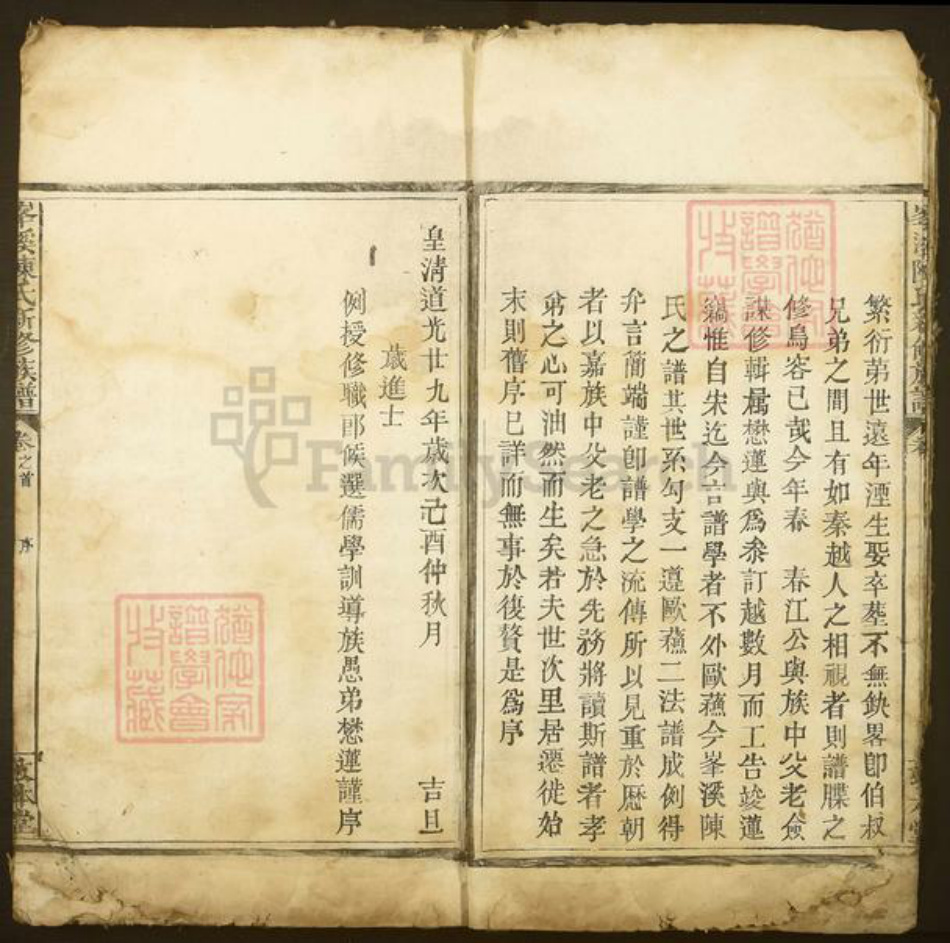 繁衍第世遠年湮生娶卒塟不無缺畧卽伯叔
兄弟之間且有如秦越人之相視者則譜牒之
修烏容已哉今年春 春江公與族中父老僉
謀修輯屬懋蓮與爲叅訂越數月而工告竣蓮
竊惟自宋迄今言譜學者不外歐蘓今峯溪陳
氏之譜其世系勾支一遵歐蘓二法譜成例得
弁言簡端謹卽譜學之流傳所以見重於歷朝
者以嘉族中父老之急於先務將讀斯譜者孝
弟之心可油然而生矣若夫世次里居遷徙始
末則舊序已詳而無事於復贅是爲序
皇清道光廿九年歲次己酉仲秋月 吉旦
歲進士
例授修職郎候選儒學訓導族愚弟懋蓮謹序
峯溪陳氏新修族譜 卷之首 序 敦本堂
FamilySearch